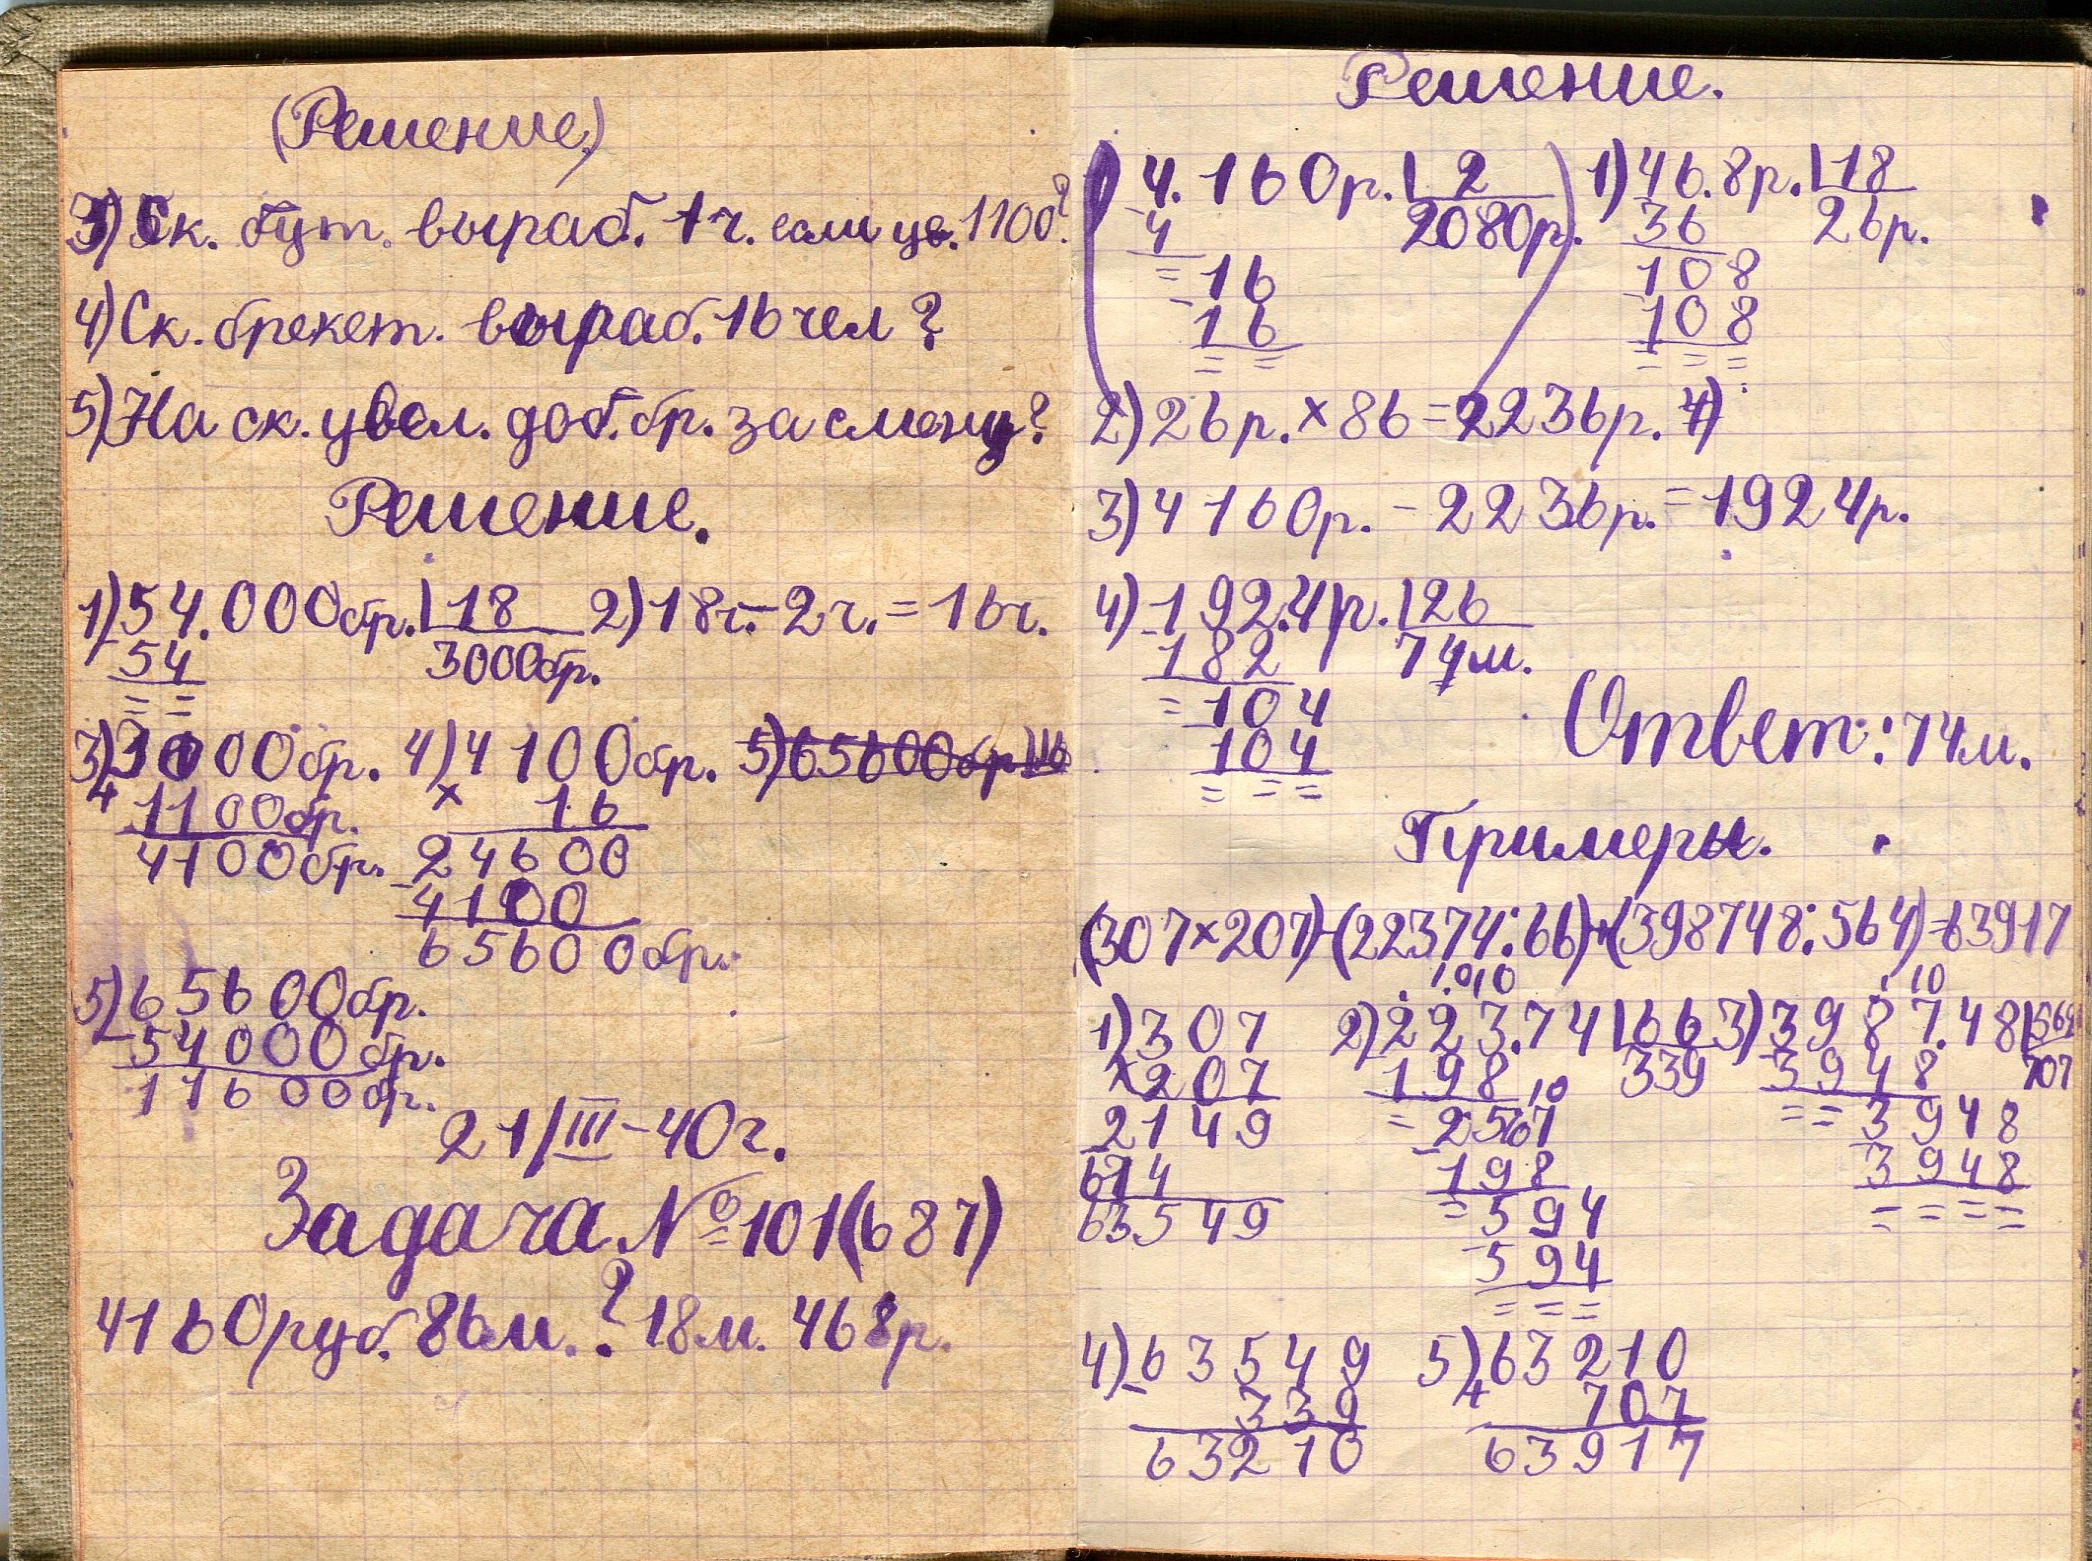 (Решение)
3) Ск. бут. выраб. 1 ч. если ув. 1100?
4) Ск. брекет. выраб. 16 чел ?
5) На ск. увел. доб. бр. за смену?
Решение.
1) 54.000 бр. | 18 2) 18 ч. - 2 ч. = 16 ч.
54 3000 бр.
= =
3) 3000 бр. 4) 4100 бр. 5) 65600 бр | 16
+ 1100 бр. × 16
4100 бр. 24600
4100
65600 бр.
5) 65600 бр.
- 54000 бр.
11600 бр.
21/III - 40 г.
Задача № 101 (687)
4160 руб. 86 м. ? 18 м. 468 р.
Решение.
( 4.160 р. | 2 ) 1) 46.8 р. | 18
- 4 2080 р. 36 26 р.
= 16 108
- 16 108
= = = = =
2) 26 р. × 86 = 2236 р. 4)
3) 4160 р. - 2236 р. = 1924 р.
4) 192.4 р. | 26
- 182 74 м.
= 104
104
= = =
Ответ: 74 м.
Примеры.
(307 × 207) - (22374 : 66) + (398748 : 564) = 63917
1) 307 2) 223.74 | 66 3) 3987.48 | 564
× 207 198 339 3948 707
2149 = 257 = = 3948
614 - 198 3948
63549 = 594 = = = =
594
= = =
4) 63549 5) 63210
- 339 + 707
63210 63917